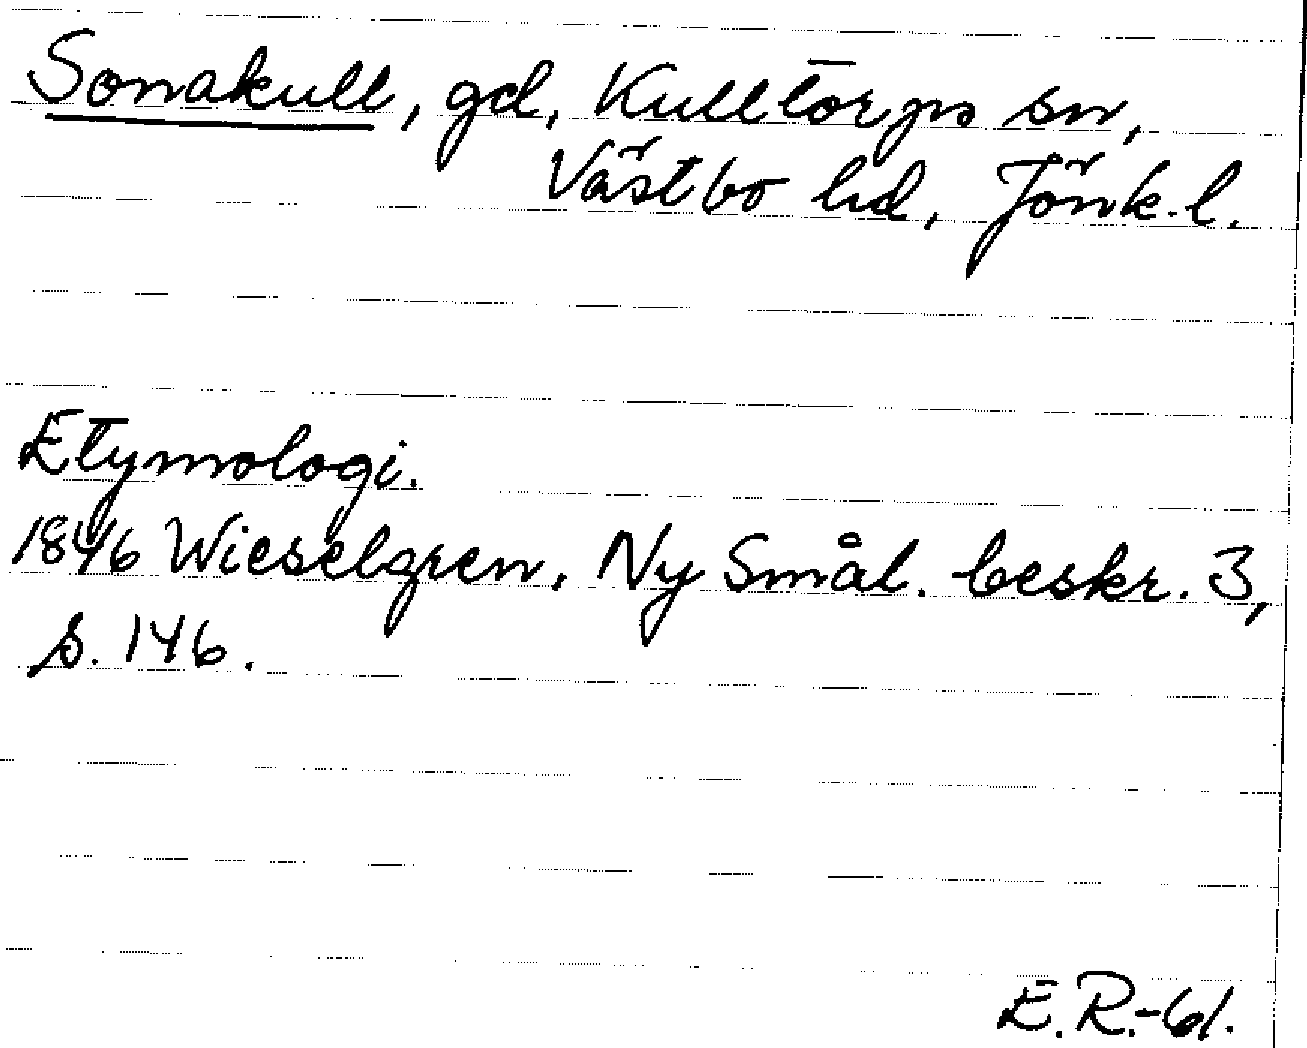 Sonakull, gd, Kulltorps sn,
Västbo hd, Jönk. l.
Etymologi.
1846 Wieselgren, Ny Smål. beskr. 3,
s. 146.
E.R.-61.